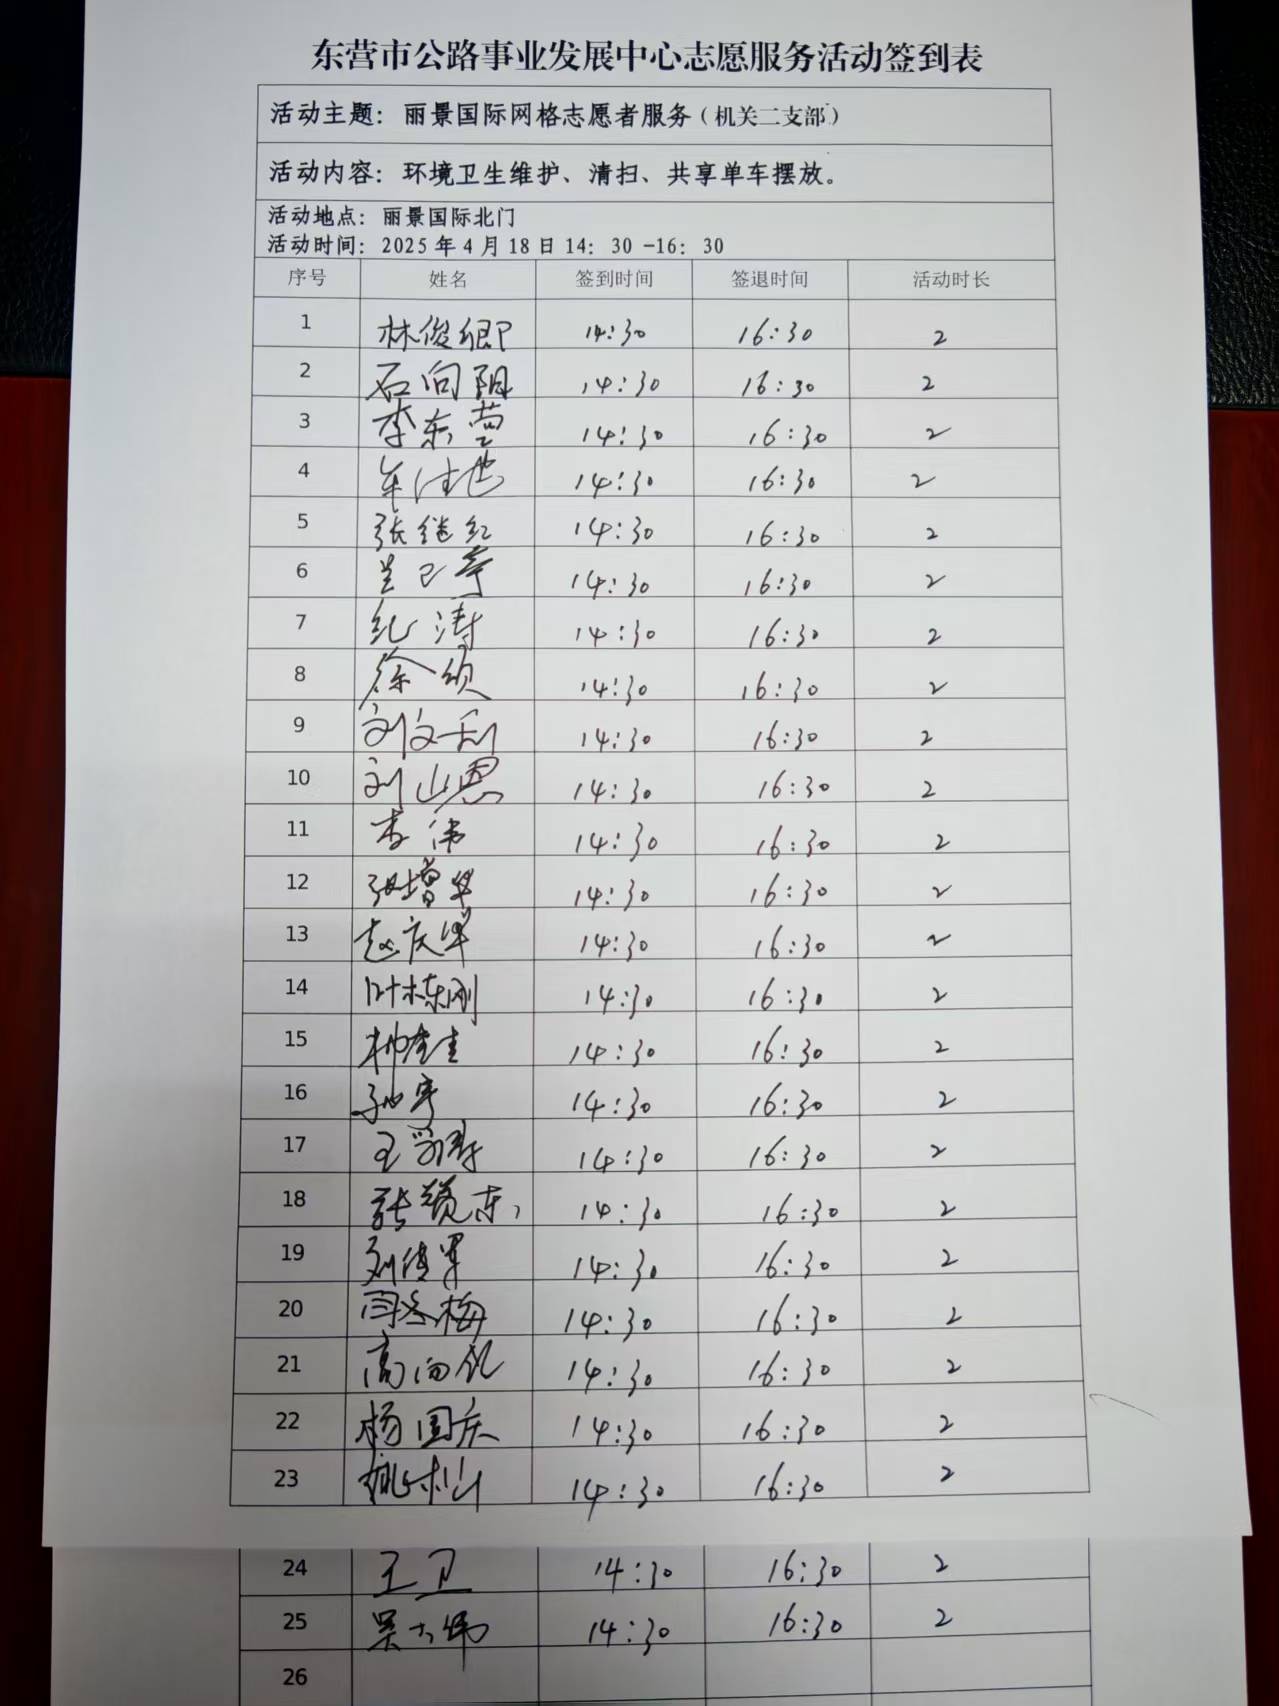 东营市公路事业发展中心志愿服务活动签到表
活动主题：丽景国际网格志愿者服务（机关二支部）
活动内容：环境卫生维护、清扫、共享单车摆放。
活动地点：丽景国际北门
活动时间：2025年4月18日14：30-16：30
序号 姓名 签到时间 签退时间 活动时长
1 林俊卿 14:30 16:30 2
2 石向阳 14:30 16:30 2
3 李东营 14:30 16:30 2
4 14:30 16:30 2
5 张继红 14:30 16:30 2
6 14:30 16:30 2
7 纪涛 14:30 16:30 2
8 徐 14:30 16:30 2
9 刘文利 14:30 16:30 2
10 刘山恩 14:30 16:30 2
11 李伟 14:30 16:30 2
12 张增华 14:30 16:30 2
13 赵庆华 14:30 16:30 2
14 叶栋刚 14:30 16:30 2
15 14:30 16:30 2
16 孙宇 14:30 16:30 2
17 王 14:30 16:30 2
18 张 东 14:30 16:30 2
19 刘 军 14:30 16:30 2
20 闫冬梅 14:30 16:30 2
21 高 14:30 16:30 2
22 杨国庆 14:30 16:30 2
23 姚 山 14:30 16:30 2
24 王卫 14:30 16:30 2
25 吴大伟 14:30 16:30 2
26